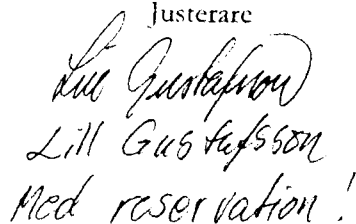 Justerare
Lill Gustafsson
Lill Gustafsson
Med reservation!